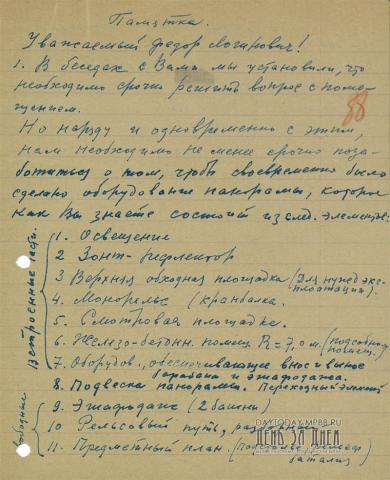 Памятка.
Уважаемый Федор Логинович!
1. В беседах с Вами мы установили, что
необходимо срочно решить вопрос с поме-
щением.
88
Но наряду и одновременно с этим,
нам необходимо не менее срочно поза-
ботиться о том, чтобы своевременно было
сделано оборудование панорамы, которое
как Вы знаете состоит из след. элементов:
Встроенные части.
1. Освещение
2 Зонт-рефлектор
3 Верхняя обходная площадка (для нужд экс-
плоатации).
4. Монорельс (кранбалка.
5. Смотровая площадка.
6. Железо-бетонн. помещ. R=7,0 м (подсобное
помещ.).
7. Оборудов. обеспечивающее внос и вынос
барабана и эшафодажа.
8. Подвеска панорамы. Переходный элемент
9. Эшафодаж (2 башни)
10 Рельсовый путь, разборный
11. Предметный план. (
баталия)
DAYTODAY.MPBB.RU
ДЕНЬ ЗА ДНЕМ